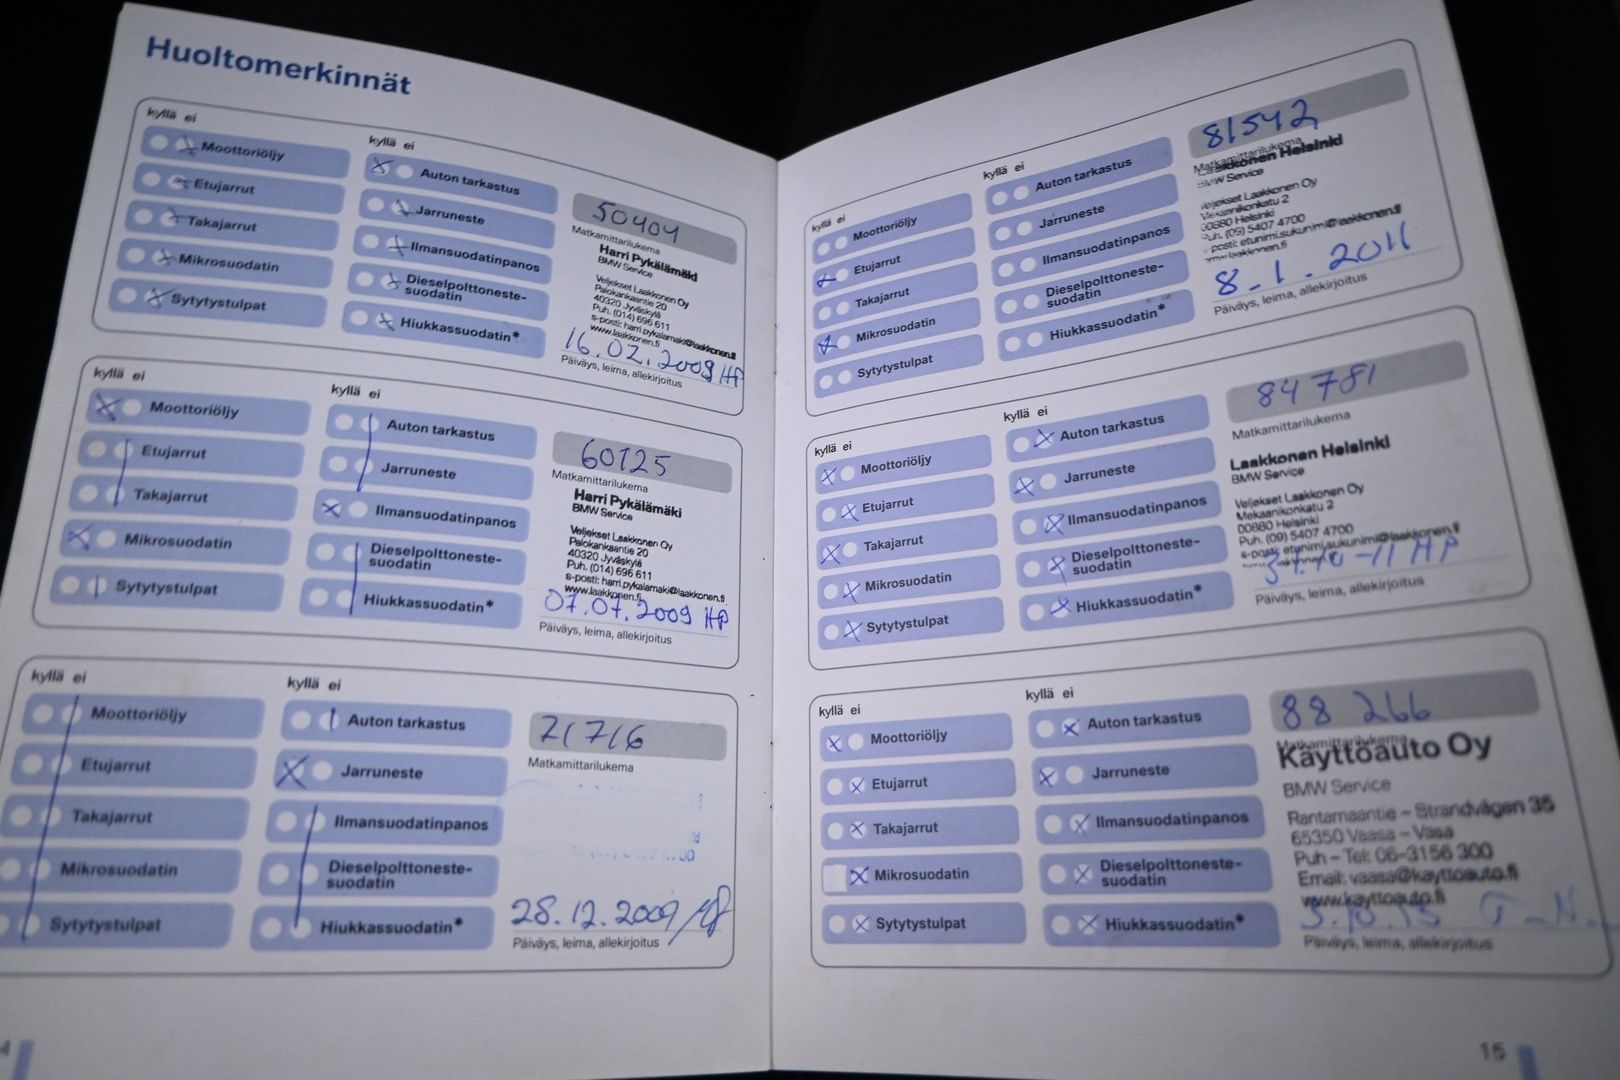 Huoltomerkinnät
kyllä ei
Moottoriöljy
Etujarrut
Takajarrut
Mikrosuodatin
Sytytystulpat
kyllä ei
Auton tarkastus
Jarruneste
Ilmansuodatinpanos
Dieselpolttoneste-
suodatin
Hiukkassuodatin*
50404
Matkamittarilukema
Harri Pykälämäki
BMW Service
Veljekset Laakkonen Oy
Palokankaantie 20
40320 Jyväskylä
Puh. (014) 696 611
s-posti: harri.pykalamaki@laakkonen.fi
www.laakkonen.fi
16.02.2009 HP
Päiväys, leima, allekirjoitus
kyllä ei
Moottoriöljy
Etujarrut
Takajarrut
Mikrosuodatin
Sytytystulpat
kyllä ei
Auton tarkastus
Jarruneste
Ilmansuodatinpanos
Dieselpolttoneste-
suodatin
Hiukkassuodatin*
60125
Matkamittarilukema
Harri Pykälämäki
BMW Service
Veljekset Laakkonen Oy
Palokankaantie 20
40320 Jyväskylä
Puh. (014) 696 611
s-posti: harri.pykalamaki@laakkonen.fi
www.laakkonen.fi
07.07.2009 HP
Päiväys, leima, allekirjoitus
kyllä ei
Moottoriöljy
Etujarrut
Takajarrut
Mikrosuodatin
Sytytystulpat
kyllä ei
Auton tarkastus
Jarruneste
Ilmansuodatinpanos
Dieselpolttoneste-
suodatin
Hiukkassuodatin*
71716
Matkamittarilukema
28.12.2009
Päiväys, leima, allekirjoitus
4
kyllä ei
Moottoriöljy
Etujarrut
Takajarrut
Mikrosuodatin
Sytytystulpat
kyllä ei
Auton tarkastus
Jarruneste
Ilmansuodatinpanos
Dieselpolttoneste-
suodatin
Hiukkassuodatin*
81542
Matkamittarilukema
Laakkonen Helsinki
BMW Service
Veljekset Laakkonen Oy
Mekaanikonkatu 2
00880 Helsinki
Puh. (09) 5407 4700
s-posti: etunimi.sukunimi@laakkonen.fi
8.1.2011
Päiväys, leima, allekirjoitus
kyllä ei
Moottoriöljy
Etujarrut
Takajarrut
Mikrosuodatin
Sytytystulpat
kyllä ei
Auton tarkastus
Jarruneste
Ilmansuodatinpanos
Dieselpolttoneste-
suodatin
Hiukkassuodatin*
84781
Matkamittarilukema
Laakkonen Helsinki
BMW Service
Veljekset Laakkonen Oy
Mekaanikonkatu 2
00880 Helsinki
Puh. (09) 5407 4700
s-posti: etunimi.sukunimi@laakkonen.fi
31.10-11 HP
Päiväys, leima, allekirjoitus
kyllä ei
Moottoriöljy
Etujarrut
Takajarrut
Mikrosuodatin
Sytytystulpat
kyllä ei
Auton tarkastus
Jarruneste
Ilmansuodatinpanos
Dieselpolttoneste-
suodatin
Hiukkassuodatin*
88 266
Matkamittarilukema
Käyttöauto Oy
BMW Service
Rantamaantie – Strandvägen 35
65350 Vaasa – Vasa
Puh – Tel: 06–3156 300
Email: vaasa@kayttoauto.fi
www.kayttoauto.fi
Päiväys, leima, allekirjoitus
15